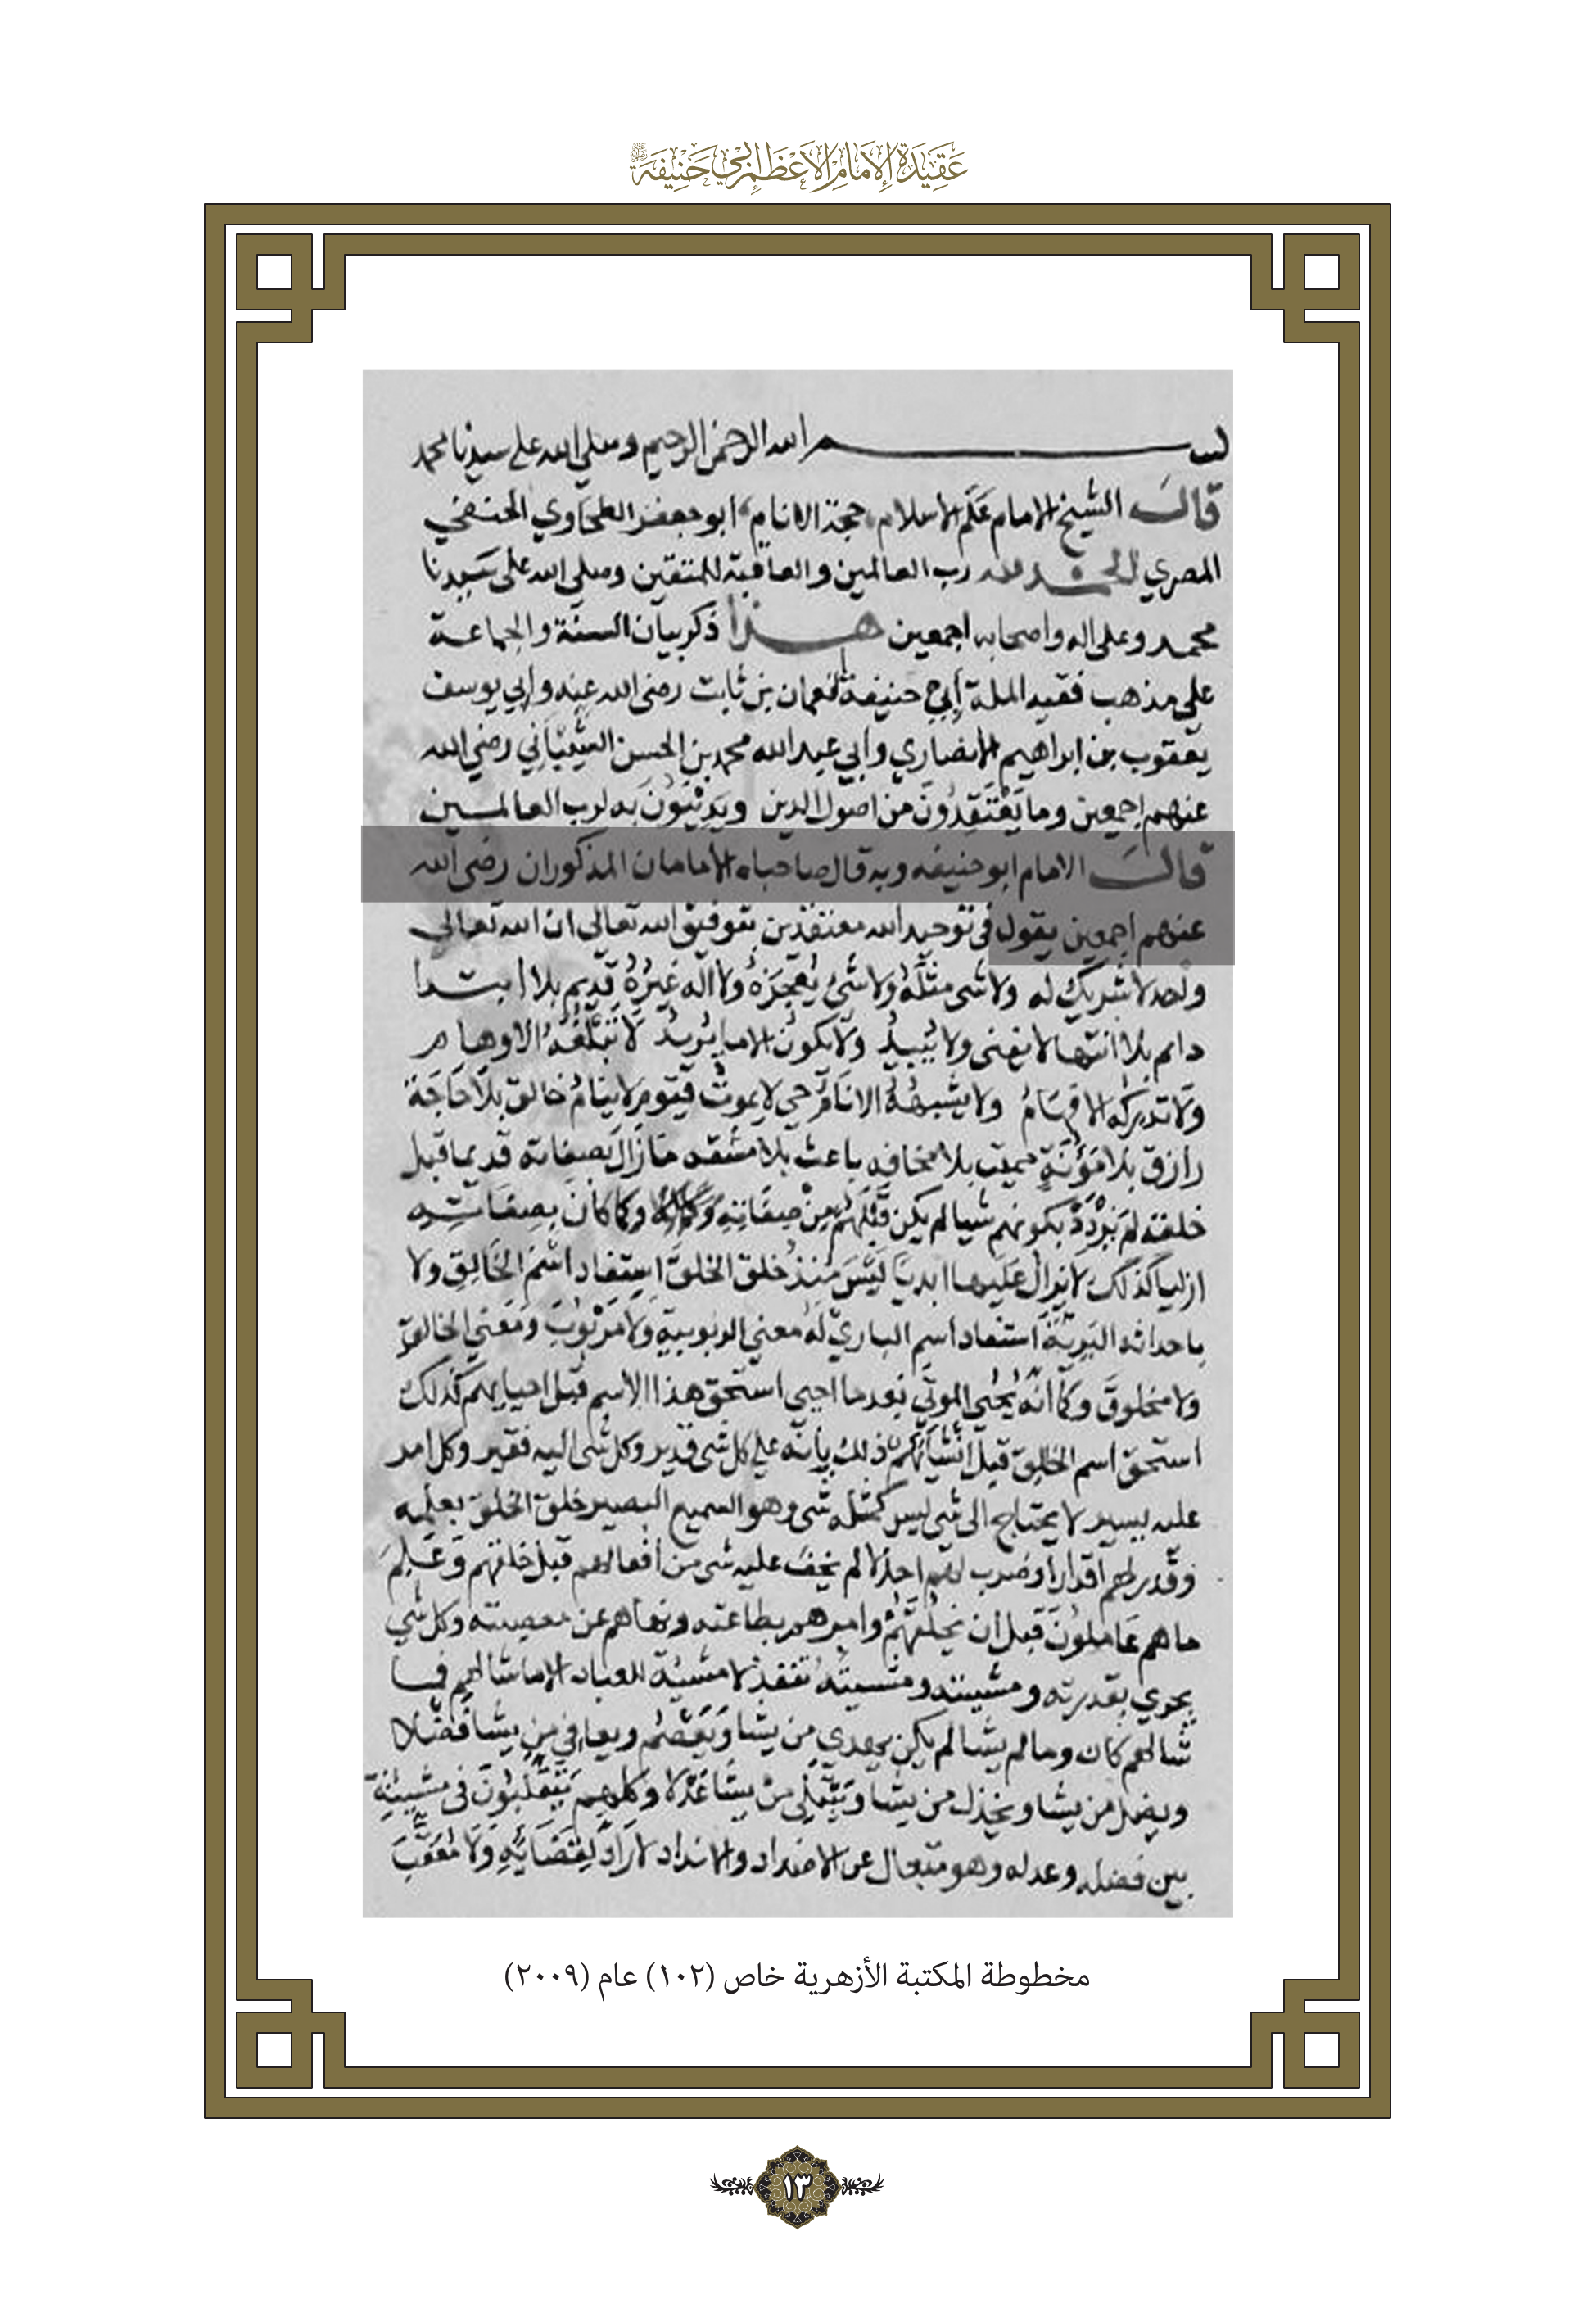 عَقِيدَةُ الإِمَامِ الأَعْظَمِ أَبِي حَنِيفَةَ
بسم الله الرحمن الرحيم وصلي الله علي سيدنا محمد
قال الشيخ الامام عَلَم الاسلام حجة الانام ابو جعفر الطحَاوي الحنفي
المصري الحمد لله رب العالمين والعاقبة للمتقين وصلي الله على سَيدنا
محمد وعلى اله واصحابه اجمعين هذا ذكر بيان السنة والجماعة
علي مذهب فقيه الملة ابي حنيفة النعمان بن ثابت رضى الله عنه وابي يوسف
يعقوب بن ابراهيم الانصاري وابي عبد الله محمد بن الحسن الشيبَاني رضي الله
عنهم اجمعين وما يَعْتَقِدُونَ من اصول الدين ويَدِيْنُوْنَ به لرب العالمين
قالَ الامام ابو حنيفه وبه قال صاحباه الامامان المذكوران رضى الله
عنهم اجمعين يقول في توحيد الله معتقدين بتوفيق الله تعالى ان الله تعالى
واحد لا شريك له ولا شى مثلَهُ ولا شىُ يُعجزهُ ولا اله غيرُهُ قديم بلا ابتدا
دايم بلا انتها لا يفنى ولا يَبيدُ ولا يكون الا ما يُريدُ لا تَبلُغُهُ الاوهام
ولا تدركه الافهَامُ ولا يشبهُهُ الانامُ حي لا يموتُ قيوم لا ينامُ خالق بلا حَاجَة
رازق بلا مؤنَةٍ مميت بلا مخافه باعث بلا مشقه مَا زَالَ بصفاته قديما قبل
خلقه لم يَزْدَدْ بكونهم شيا لم يكن قَبْلَهُمْ مِنْ صِفَاتِهِ وكما كَانَ بِصِفَاتِهِ
ازليا كذلك لا يزال عَلَيها ابديَا لَيْسَ مُنذُ خلق الخلقَ استفاد اسْمَ الخَالِقِ ولا
باحداثه البَريَّةَ استفاد اسم الباريْ لَهُ معني الربوبيةِ ولا مَرْبُوبَ وَمَعْني الخالق
ولا مخلوقَ وكما انَّهُ يُحيي الموتي بعد ما احيى استحق هذا الاسم قبل احيايهم كذلك
استحق اسم الخالِقِ قبل انْشَائِهم ذلك بِأنَّه علي كل شى قدير وكل شى اليه فقير وكل امر
عليه يسير لا يحتاج الى شى ليس كمثله شى وهو السميع البصير خلق الخلق بعلمه
وقَدر لهم اقدارا وضرب لهم اجالا لم يَخفَ عليه شى من افعالهم قبل خلقهم وعَلِمَ
ما هم عَاملونَ قبل ان يَخلُقَهُمْ وامرهم بطاعته ونهاهم عن معصيته وكل شي
يجري بقدرته ومشيته ومشيتُهُ تنفذ لا مشيَّة للعباد الا ما شا لهم فما
شا لهم كان وما لم يشا لم يكن يهدي من يشا وَيَعْصِمُ ويعافي من يشا فَضْلا
ويضل من يشا ويخذل من يشا وَيَبْتَلِي مَنْ يشا عَدْلا وكلهم يَتَقَلَّبُونَ فى مشيئتِهِ
بين فضله وعدله وهو متعال عن الاضداد والانداد لا رَادَّ لِقَضَائِهِ وَلا مُعَقِّبَ
مخطوطة المكتبة الأزهرية خاص (١٠٢) عام (٢٠٠٩)
١٣